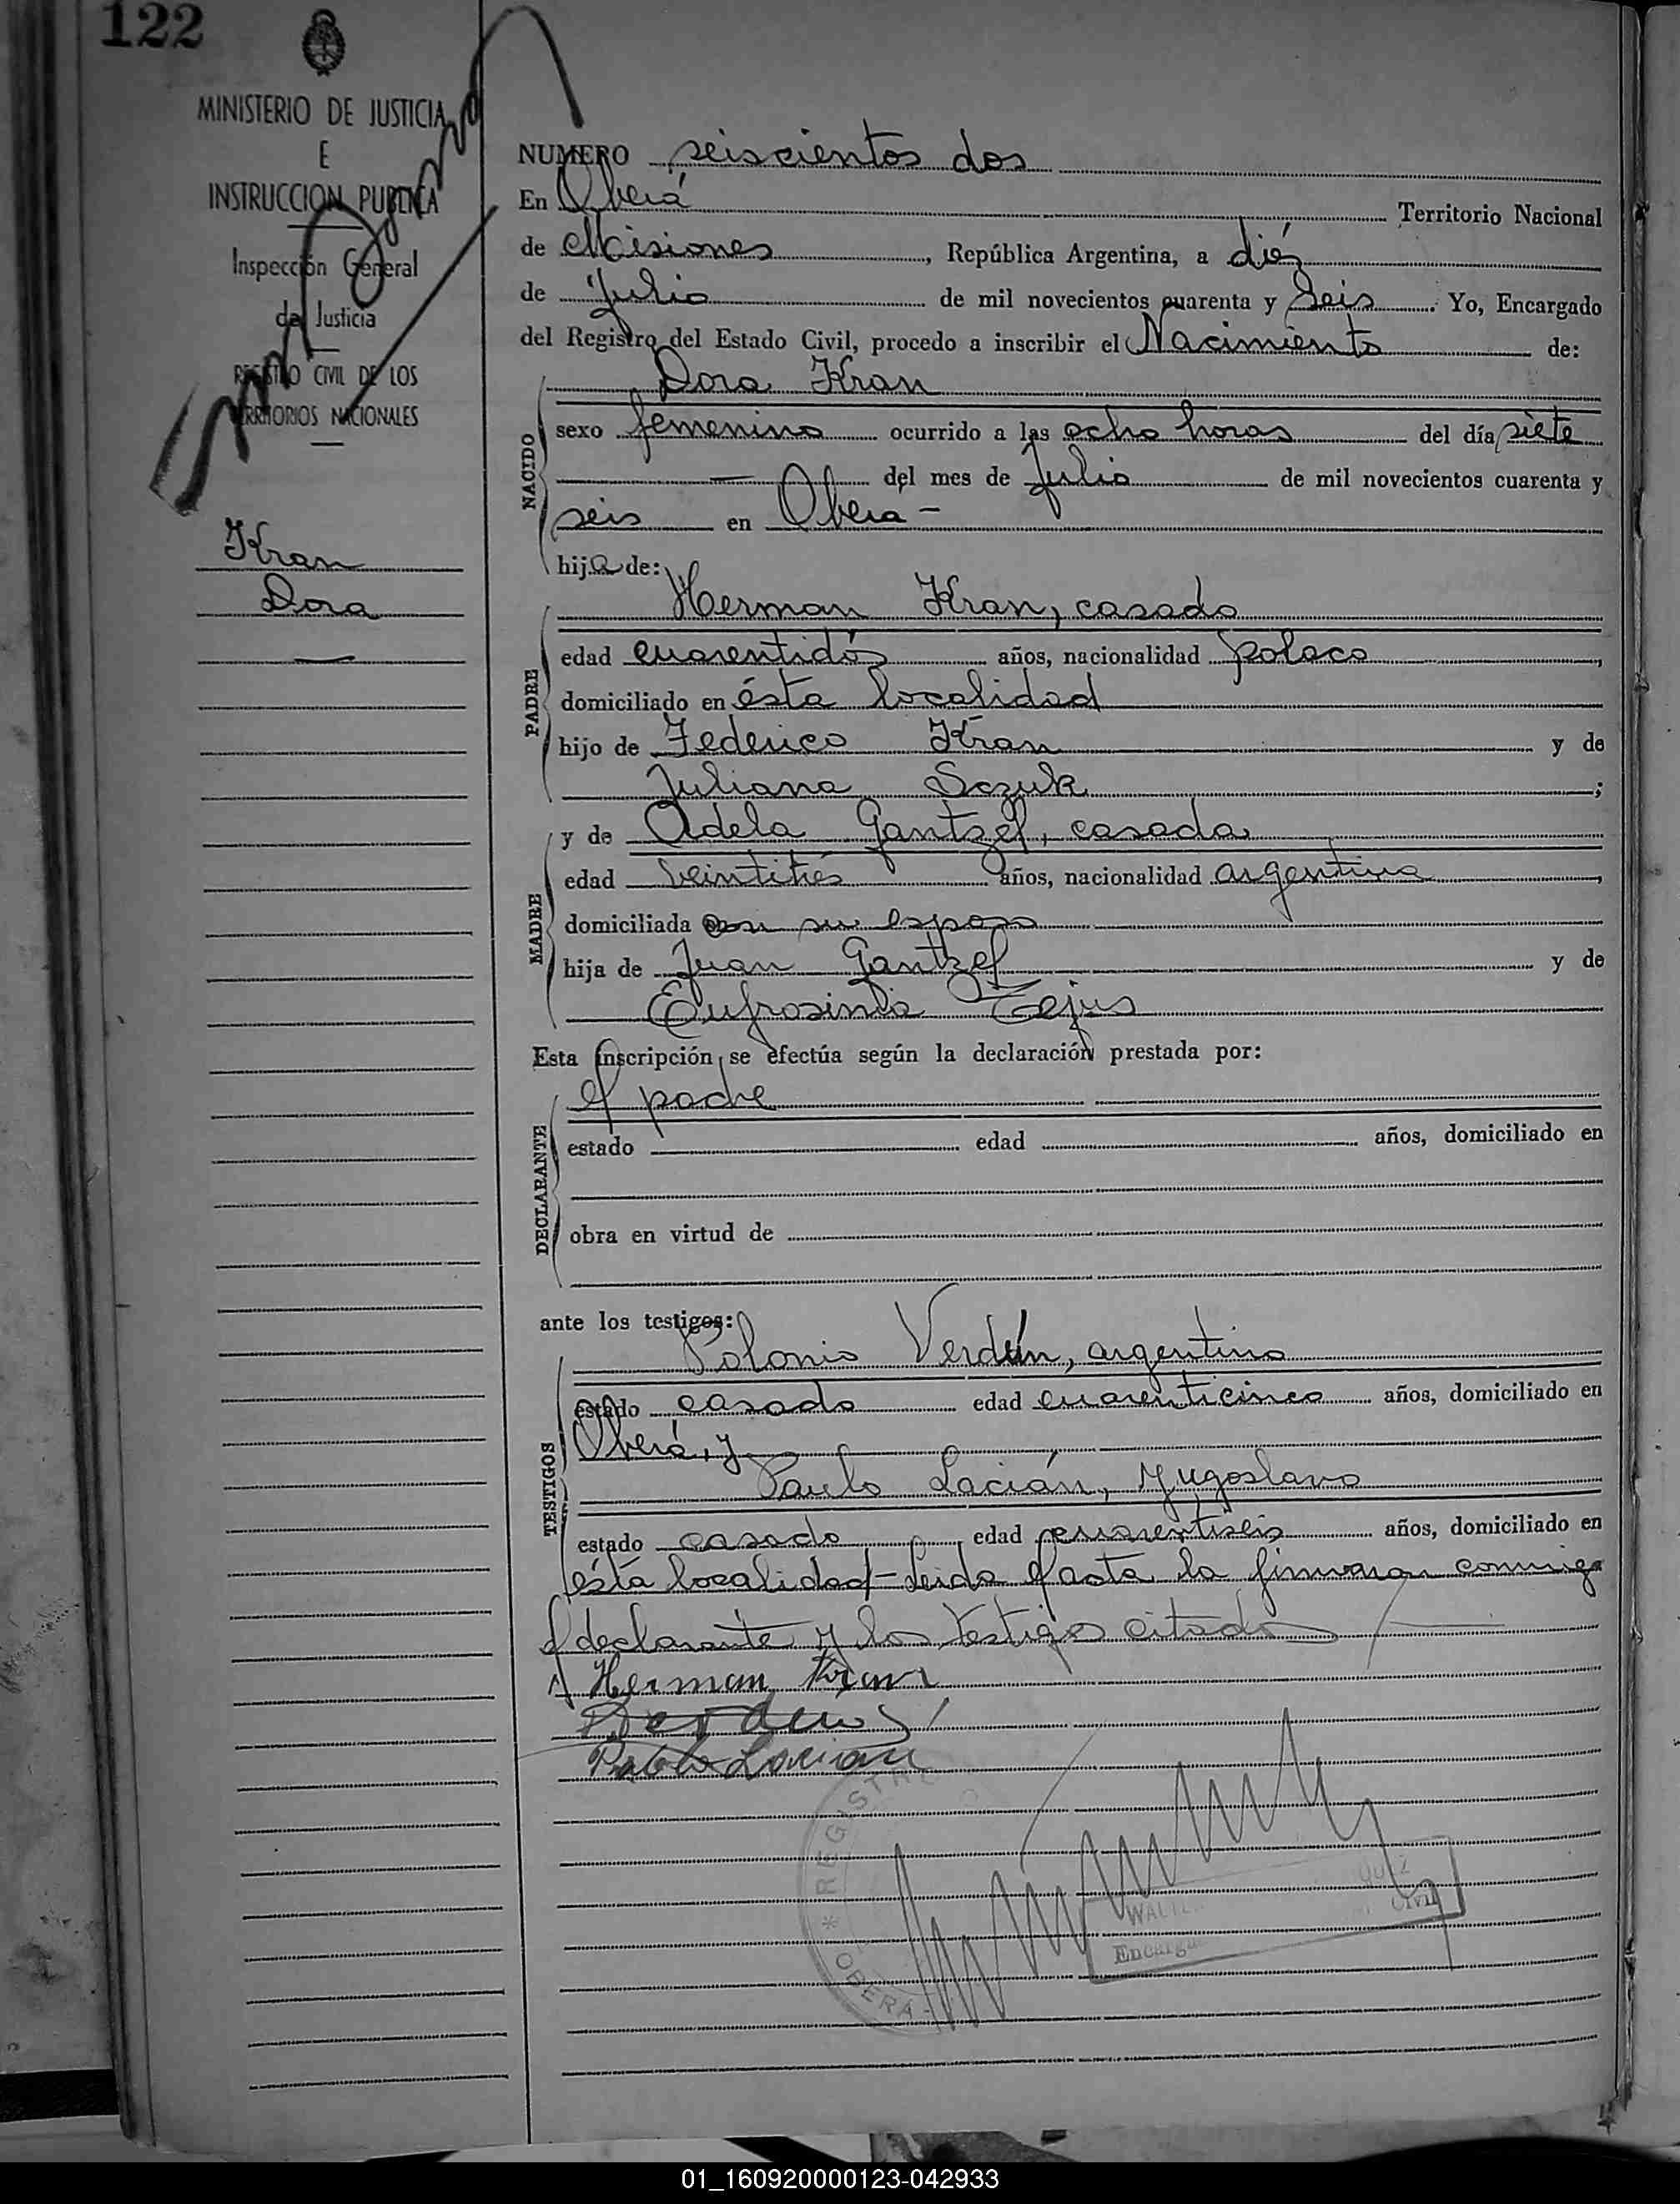 122
MINISTERIO DE JUSTICIA
E
INSTRUCCION PUBLICA
Inspección General
de Justicia
REGISTRO CIVIL DE LOS
TERRITORIOS NACIONALES
Kran
Dora
NUMERO seiscientos dos
En Oberá Territorio Nacional
de Misiones, República Argentina, a diéz
de Julio de mil novecientos cuarenta y Seis. Yo, Encargado
del Registro del Estado Civil, procedo a inscribir el Nacimiento de:
Dora Kran
NACIDO
sexo femenino ocurrido a las ocho horas del día siete
— del mes de Julio de mil novecientos cuarenta y
seis en Obera -
hija de:
Herman Kran, casado
PADRE
edad cuarentidós años, nacionalidad polaco
domiciliado en ésta localidad
hijo de Federico Kran y de
Juliana Sczuk;
y de Adela Gantzel, casada
MADRE
edad veintitrés años, nacionalidad argentina
domiciliada con su esposo
hija de Juan Gantzel y de
Eufrosinia
Esta inscripción se efectúa según la declaración prestada por:
el padre
DECLARANTE
estado edad años, domiciliado en
obra en virtud de
ante los testigos:
Polonio Verdún, argentino
TESTIGOS
estado casado edad cuarenticinco años, domiciliado en
Oberá, y
Paulo Lacián, Yugoslavo
estado casado edad cuarentiseis años, domiciliado en
ésta localidad - Leida el acta la firmaran conmigo
el declarante y los testigos citados
Herman Kran
Pablo Lacian
REGISTR
OBERA
WALTE
Encarg
Civil
01_160920000123-042933